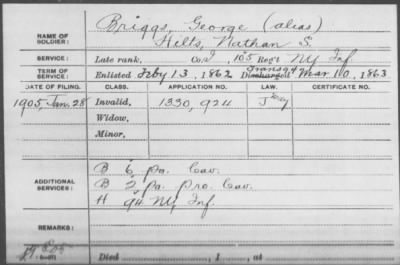 NAME OF SOLDIER: Briggs, George (alias)
Hilts, Nathan S.
SERVICE: Late rank, Co. I, 105 Reg't NY Inf.
TERM OF SERVICE: Enlisted Feby 13, 1862 Discharged Mar 10, 1863
Trans 94
DATE OF FILING. CLASS. APPLICATION NO. LAW. CERTIFICATE NO.
1905 Jan. 28 Invalid, 1330,924
Widow,
Minor,
ADDITIONAL SERVICES: B 6 Pa. Cav.
B 2 Pa. Pro. Cav.
H 94 NY Inf.
REMARKS:
Died , 1 , at